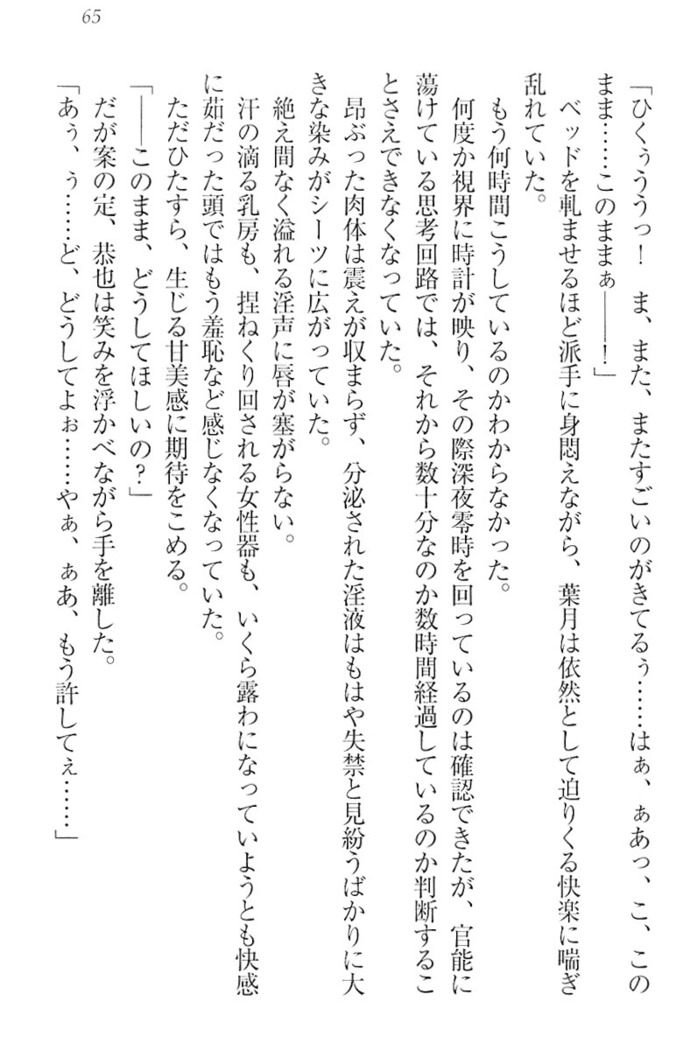 65
「ひくぅううっ！　ま、また、またすごいのがきてるぅ……はぁ、ぁあっ、こ、この
まま……このままぁ――！」
ベッドを軋ませるほど派手に身悶えながら、葉月は依然として迫りくる快楽に喘ぎ
乱れていた。
もう何時間こうしているのかわからなかった。
何度か視界に時計が映り、その際深夜零時を回っているのは確認できたが、官能に
蕩けている思考回路では、それから数十分なのか数時間経過しているのか判断するこ
とさえできなくなっていた。
昂ぶった肉体は震えが収まらず、分泌された淫液はもはや失禁と見紛うばかりに大
きな染みがシーツに広がっていた。
絶え間なく溢れる淫声に唇が塞がらない。
汗の滴る乳房も、捏ねくり回される女性器も、いくら露わになっていようとも快感
に茹だった頭ではもう羞恥など感じなくなっていた。
ただひたすら、生じる甘美感に期待をこめる。
「――このまま、どうしてほしいの？」
だが案の定、恭也は笑みを浮かべながら手を離した。
「あぅ、ぅ……ど、どうしてよぉ……やぁ、ぁあ、もう許してぇ……」